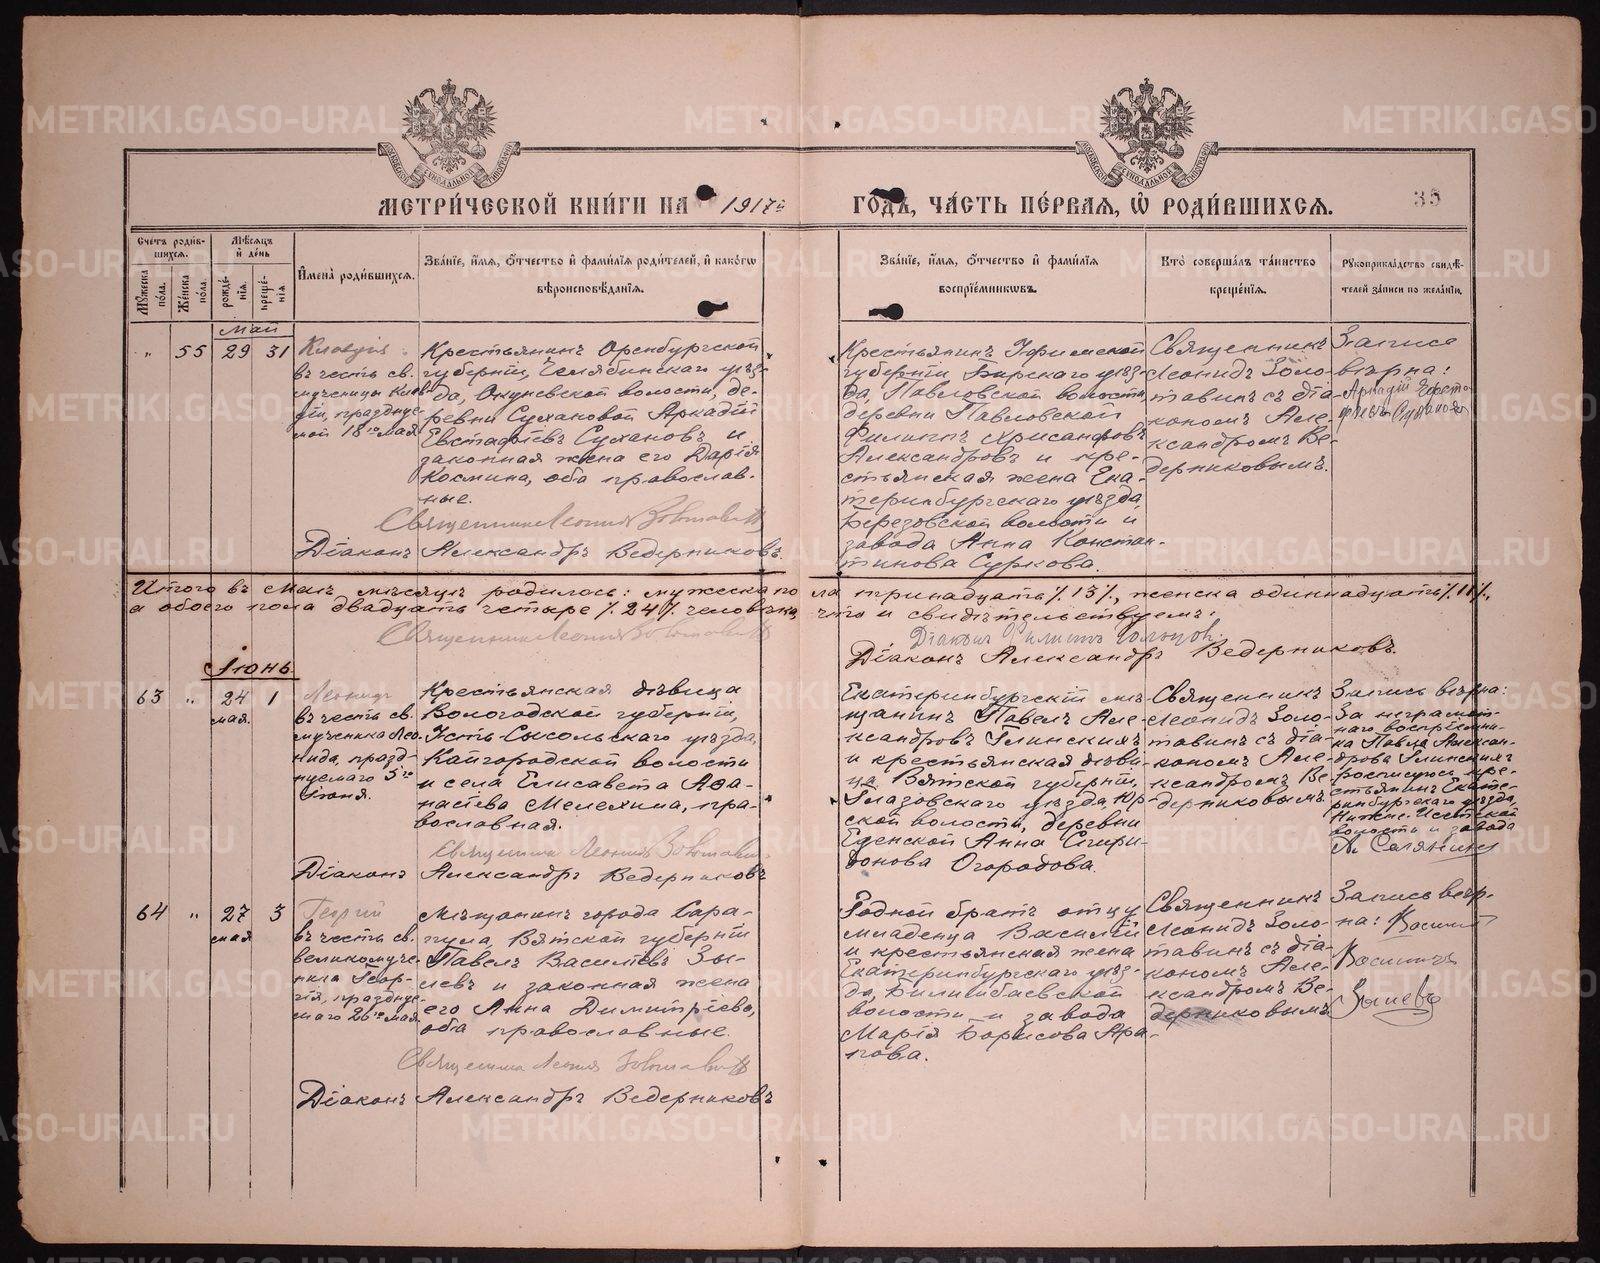 МЕТРИ́ЧЕСКОЙ КНИ́ГИ НА 1917й
ГО́ДЪ, ЧА́СТЬ ПЕ́РВАЯ, Ѡ РОДИ́ВШИХСЯ.
35
Счетъ роди́вшихся.
Му́жеска по́ла.
Же́нска по́ла.
Мѣсяцъ и де́нь
рожде́нія.
креще́нія.
И́мена роди́вшихся.
Зва́ніе, и́мя, о́тчество и фами́лія роди́телей, и како́гѡ
вѣроисповѣ́данія.
Зва́ніе, и́мя, о́тчество и фами́лія
воспріе́мникѡвъ.
Кто̀ соверша́лъ та́инство
креще́нія.
Рукоприкла́дство свидѣ́-
телей за́писи по жела́нію.
Май
" 55 29 31
Клавдія
въ честь св.
мученицы Клав-
діи, праздnуе-
мой 18го мая
Крестьянинъ Оренбургской
губерніи, Челябинскаго уѣз-
да, Окуневской волости, де-
ревни Сухановой Аркадій
Евстафіевъ Сухановъ и
законная жена его Дарія
Космина, оба православ-
ные.
Священникъ Леонидъ Золотавинъ
Діаконъ Александръ Ведерниковъ.
Крестьянинъ Уфимской
губерніи Бирскаго уѣз-
да, Павловской волости
деревни Павловской
Филиппъ Хрисанфовъ
Александровъ и кре-
стьянская жена Ека-
теринбургскаго уѣзда,
Березовской волости и
завода Анна Констан-
тинова Суркова.
Священникъ
Леонидъ Золо-
тавинъ съ діа-
кономъ Але-
ксандромъ Ве-
дерниковымъ.
Запись
вѣрна:
Аркадій Евста
фіевъ Сухановъ
Итого въ маѣ мѣсяцѣ родилось: мужеска по
ла тринадцать /. 13 /., женска одиннадцать /. 11 /.,
а обоего пола двадцать четыре /. 24 /. человѣка,
что и свидѣтельствуемъ:
Священникъ Леонидъ Золотавинъ
Діаконъ Александръ Ведерниковъ.
Іюнь.
63 " 24 1
мая.
Леонидъ
въ честь св.
мученика Лео-
нида, празд-
нуемаго 5го
Іюня.
Крестьянская дѣвица
Вологодской губерніи,
Усть-Сысольскаго уѣзда,
Кайгородской волости
и села Елисавета Аѳа-
насіева Мелехина, пра-
вославная.
Священникъ Леонидъ Золотавинъ
Діаконъ Александръ Ведерниковъ
Екатеринбургскій мѣ-
щанинъ Павелъ Але-
ксандровъ Глинскихъ
и крестьянская дѣви-
ца, Вятской губерніи,
Глазовскаго уѣзда, Юр-
ской волости, деревни
Еденской Анна Спири-
донова Огородова.
Священникъ
Леонидъ Золо-
тавинъ съ діа-
кономъ Але-
ксандромъ Ве-
дерниковымъ.
Запись вѣрна:
За неграмот-
наго воспріемни-
ка Павла Алексан-
дрова Глинскихъ
росписуюсь кре-
стьянинъ Екате-
ринбургскаго уѣзда,
Нижне-Исетской
волости и завода
64 " 27 3
мая
Георгій
въ честь св.
великомуче-
ника Геор-
гія, праздnуе-
маго 26го мая.
Мѣщанинъ города Сара-
пула, Вятской губерніи
Павелъ Василіевъ Зы-
левъ и законная жена
его Анна Димитріева,
оба православные.
Священникъ Леонидъ Золотавинъ
Діаконъ Александръ Ведерниковъ
Родной братъ отцу
младенца Василій
и крестьянская жена
Екатеринбургскаго уѣз-
да, Билимбаевской
волости и завода
Марія Борисова Ара-
пова.
Священникъ
Леонидъ Золо-
тавинъ съ діа-
кономъ Але-
ксандромъ Ве-
дерниковымъ.
Запись вѣр-
на: Василій
Зылевъ
METRIKI.GASO-URAL.RU